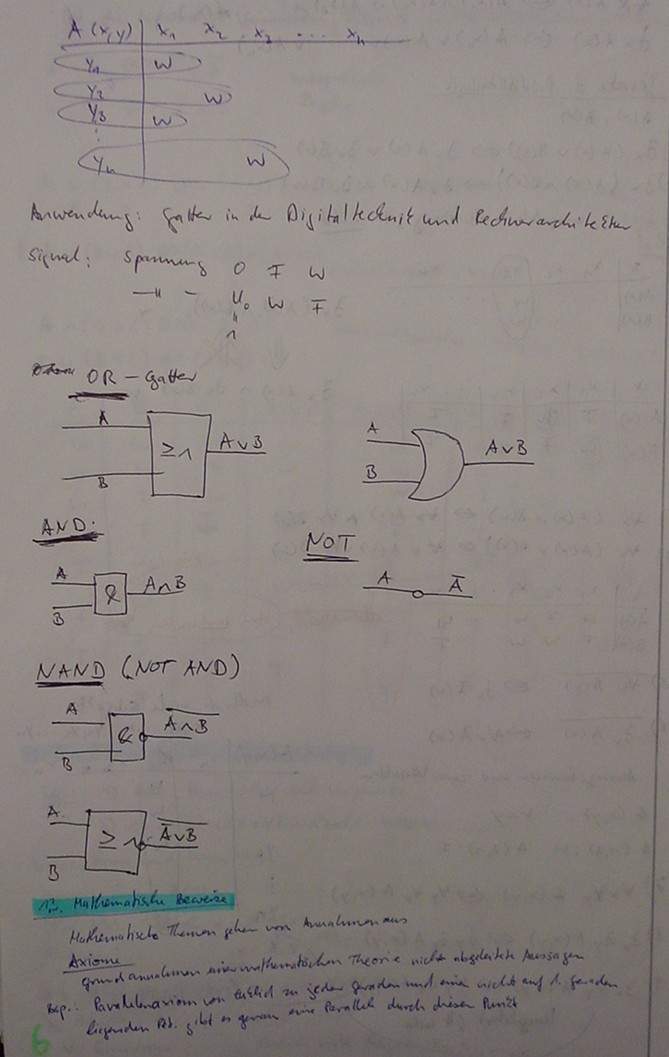 A (x,y) x₁ x₂ x₃ ... xₙ
y₁ W
y₂ W
y₃ W
⋮
yₙ W
Anwendung: Gatter in der Digitaltechnik und Rechnerarchitektur
Signal: Spannung 0 F W
—"— - U₀ W F
"
1
OR - Gatter
A A
≥1 A∨B A∨B
B B
AND: NOT
A & A∧B A Ā
B
NAND (NOT AND)
A
& A̅∧̅B̅
B
A
≥1 A̅∨̅B̅
B
Mathematische Beweise
Mathematische Theorien gehen von Annahmen aus
Axiome
Grundannahmen einer mathematischen Theorie nicht abgeleitete Aussagen
Bsp.: Parallelenaxiom von Euklid zu jeder geraden und einem nicht auf d. geraden
liegenden Pkt. gibt es genau eine Parallele durch diesen Punkt
6